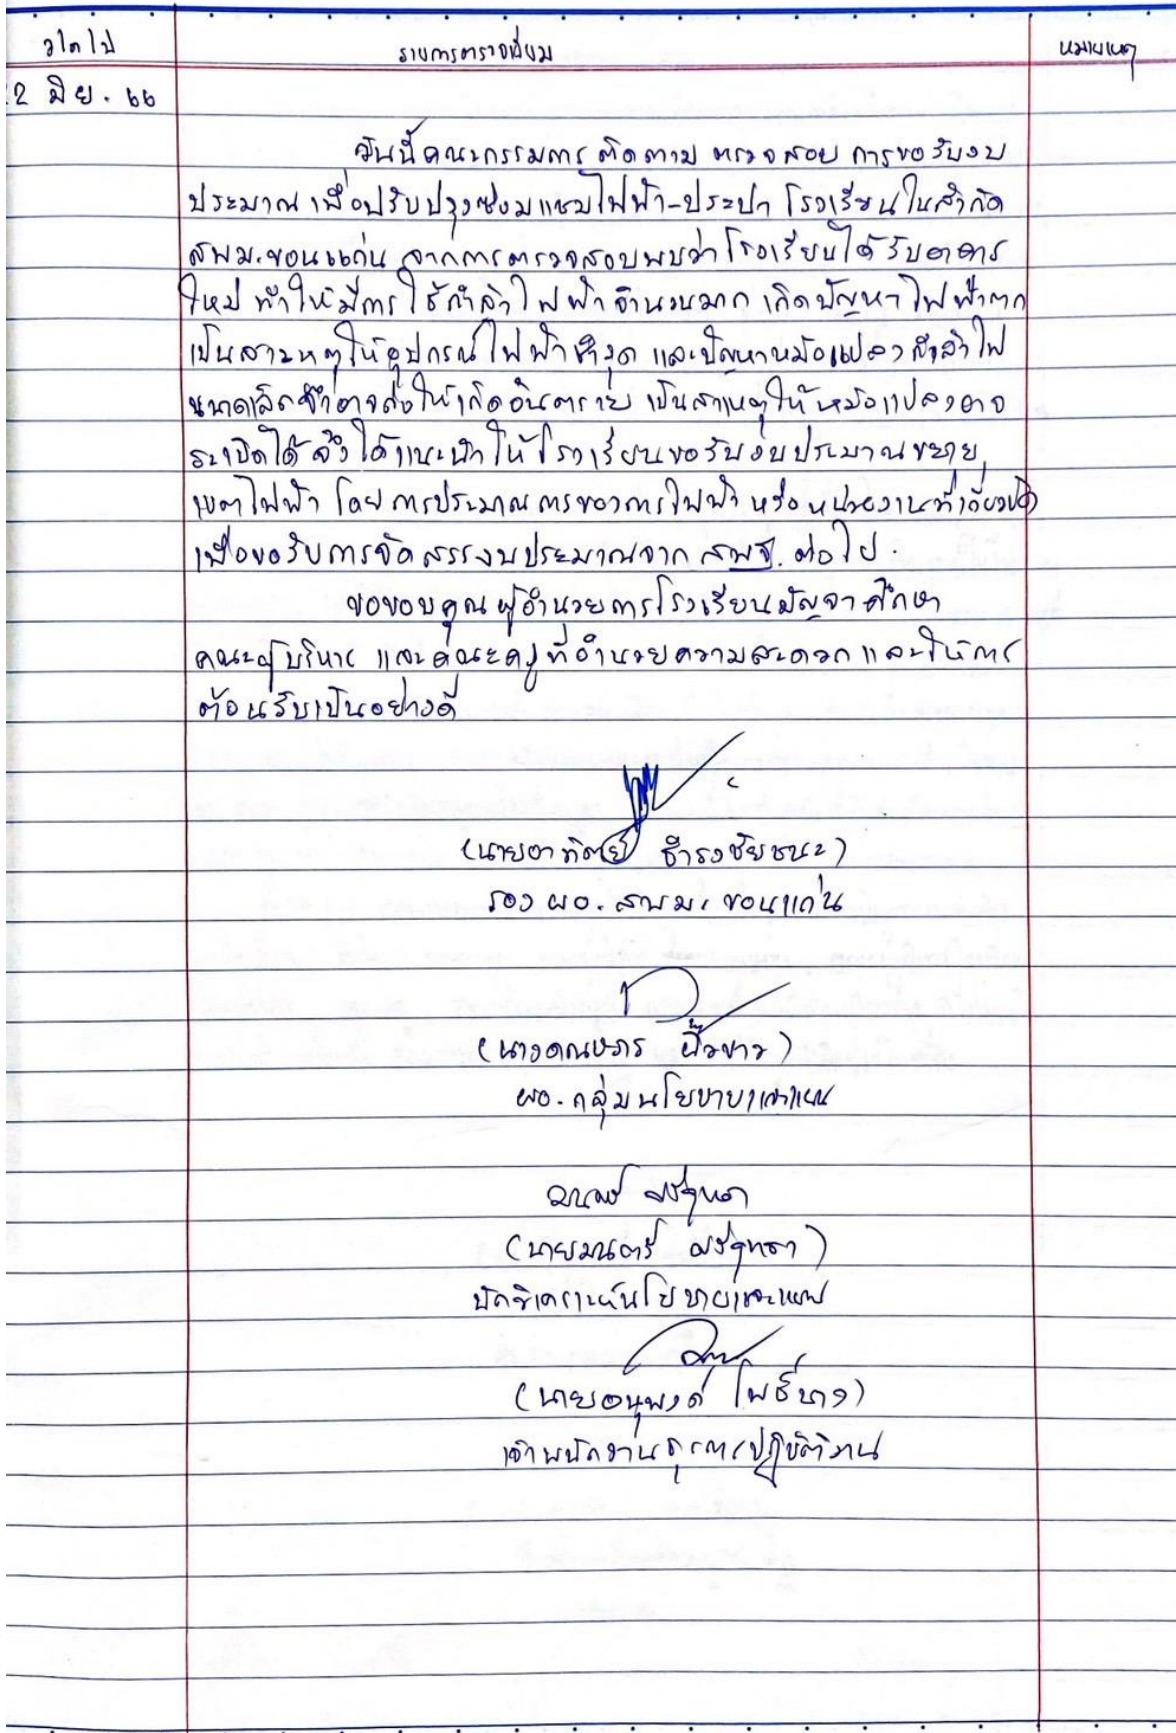 ว/ด/ป รายการตรวจเยี่ยม หมายเหตุ
2 มิย. 66
วันนี้คณะกรรมการ ติดตาม ตรวจสอบ การขอรับงบ
ประมาณ เพื่อปรับปรุงซ่อมแซมไฟฟ้า-ประปา โรงเรียนในสังกัด
สพม.ขอนแก่น จากการตรวจสอบพบว่าโรงเรียนได้รับอาคาร
ใหม่ ทำให้มีการใช้กำลังไฟฟ้าจำนวนมาก เกิดปัญหาไฟฟ้าตก
เป็นสาเหตุให้อุปกรณ์ไฟฟ้าชำรุด และปัญหาหม้อแปลงกำลังไฟ
ขนาดเล็ก อาจส่งให้เกิดอันตราย เป็นสาเหตุให้หม้อแปลงอาจ
ระเบิดได้ จึงได้แนะนำให้โรงเรียนขอรับงบประมาณขยาย
เขตไฟฟ้า โดยการประมาณการของการไฟฟ้า หรือหน่วยงานที่เกี่ยวข้อง
เพื่อขอรับการจัดสรรงบประมาณจาก สพฐ. ต่อไป.
ขอขอบคุณ ผู้อำนวยการโรงเรียนมัญจาศึกษา
คณะผู้บริหาร และคณะครู ที่อำนวยความสะดวก และให้การ
ต้อนรับเป็นอย่างดี
(นายอาทิตย์ ธำรงชัยชนะ)
รอง ผอ. สพม. ขอนแก่น
(นางคณษภร ผิวขาว)
ผอ. กลุ่มนโยบายและแผน
มนตรี
(นายมนตรี)
นักวิเคราะห์นโยบายและแผน
(นายอนุพงค์ โพธิ์หาง)
เจ้าพนักงานธุรการปฏิบัติงาน